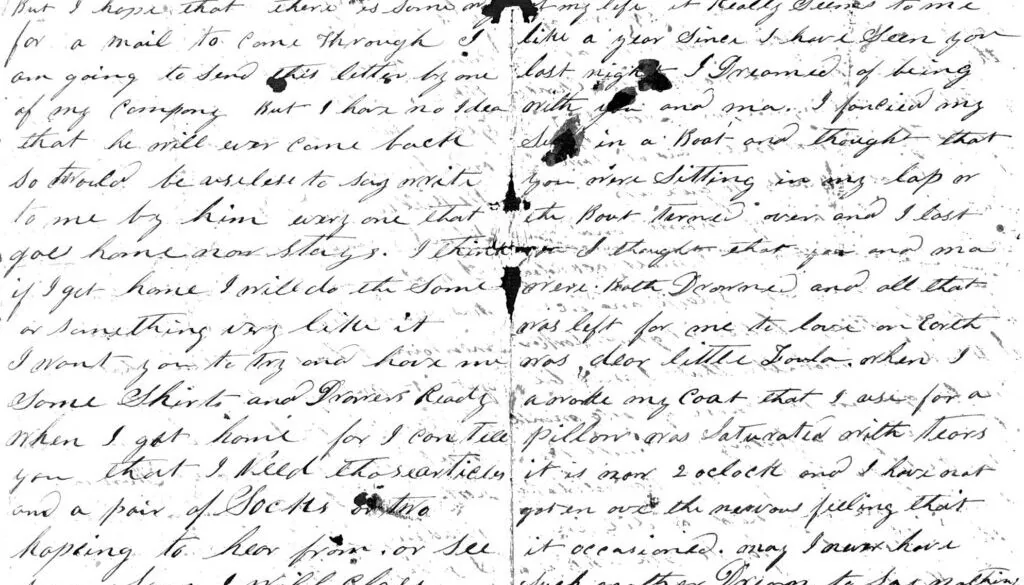 But I hope that there is some
for a mail to come through I
am going to send this letter by one
of my Company But I have no Idea
that he will ever come back
so twould be useless to say write
to me by him every one that
goes home now stays. I think
if I get home I will do the Same
or something very like it
I want you to try and have me
Some Shirts and Drawers Ready
when I get home for I can tell
you that I Need those articles
and a pair of Socks or two
hopeing to hear from. or see
I will Close
of my life it Really Seems to me
like a year Since I have Seen you
last night I Dreamed of being
with you and ma. I fancied my
Self in a Boat and thought that
you were Sitting in my lap or
the Boat Turned over and I lost
you I thought that you and ma
were Both Drowned and all that
was left for me to love on Earth
was dear little Loula. when I
awoke my Coat that I use for a
pillow was Saturated with tears
it is now 2 oclock and I have not
goten over the nervous feeling that
it occasioned. may I never have
such another Dream to Say nothing